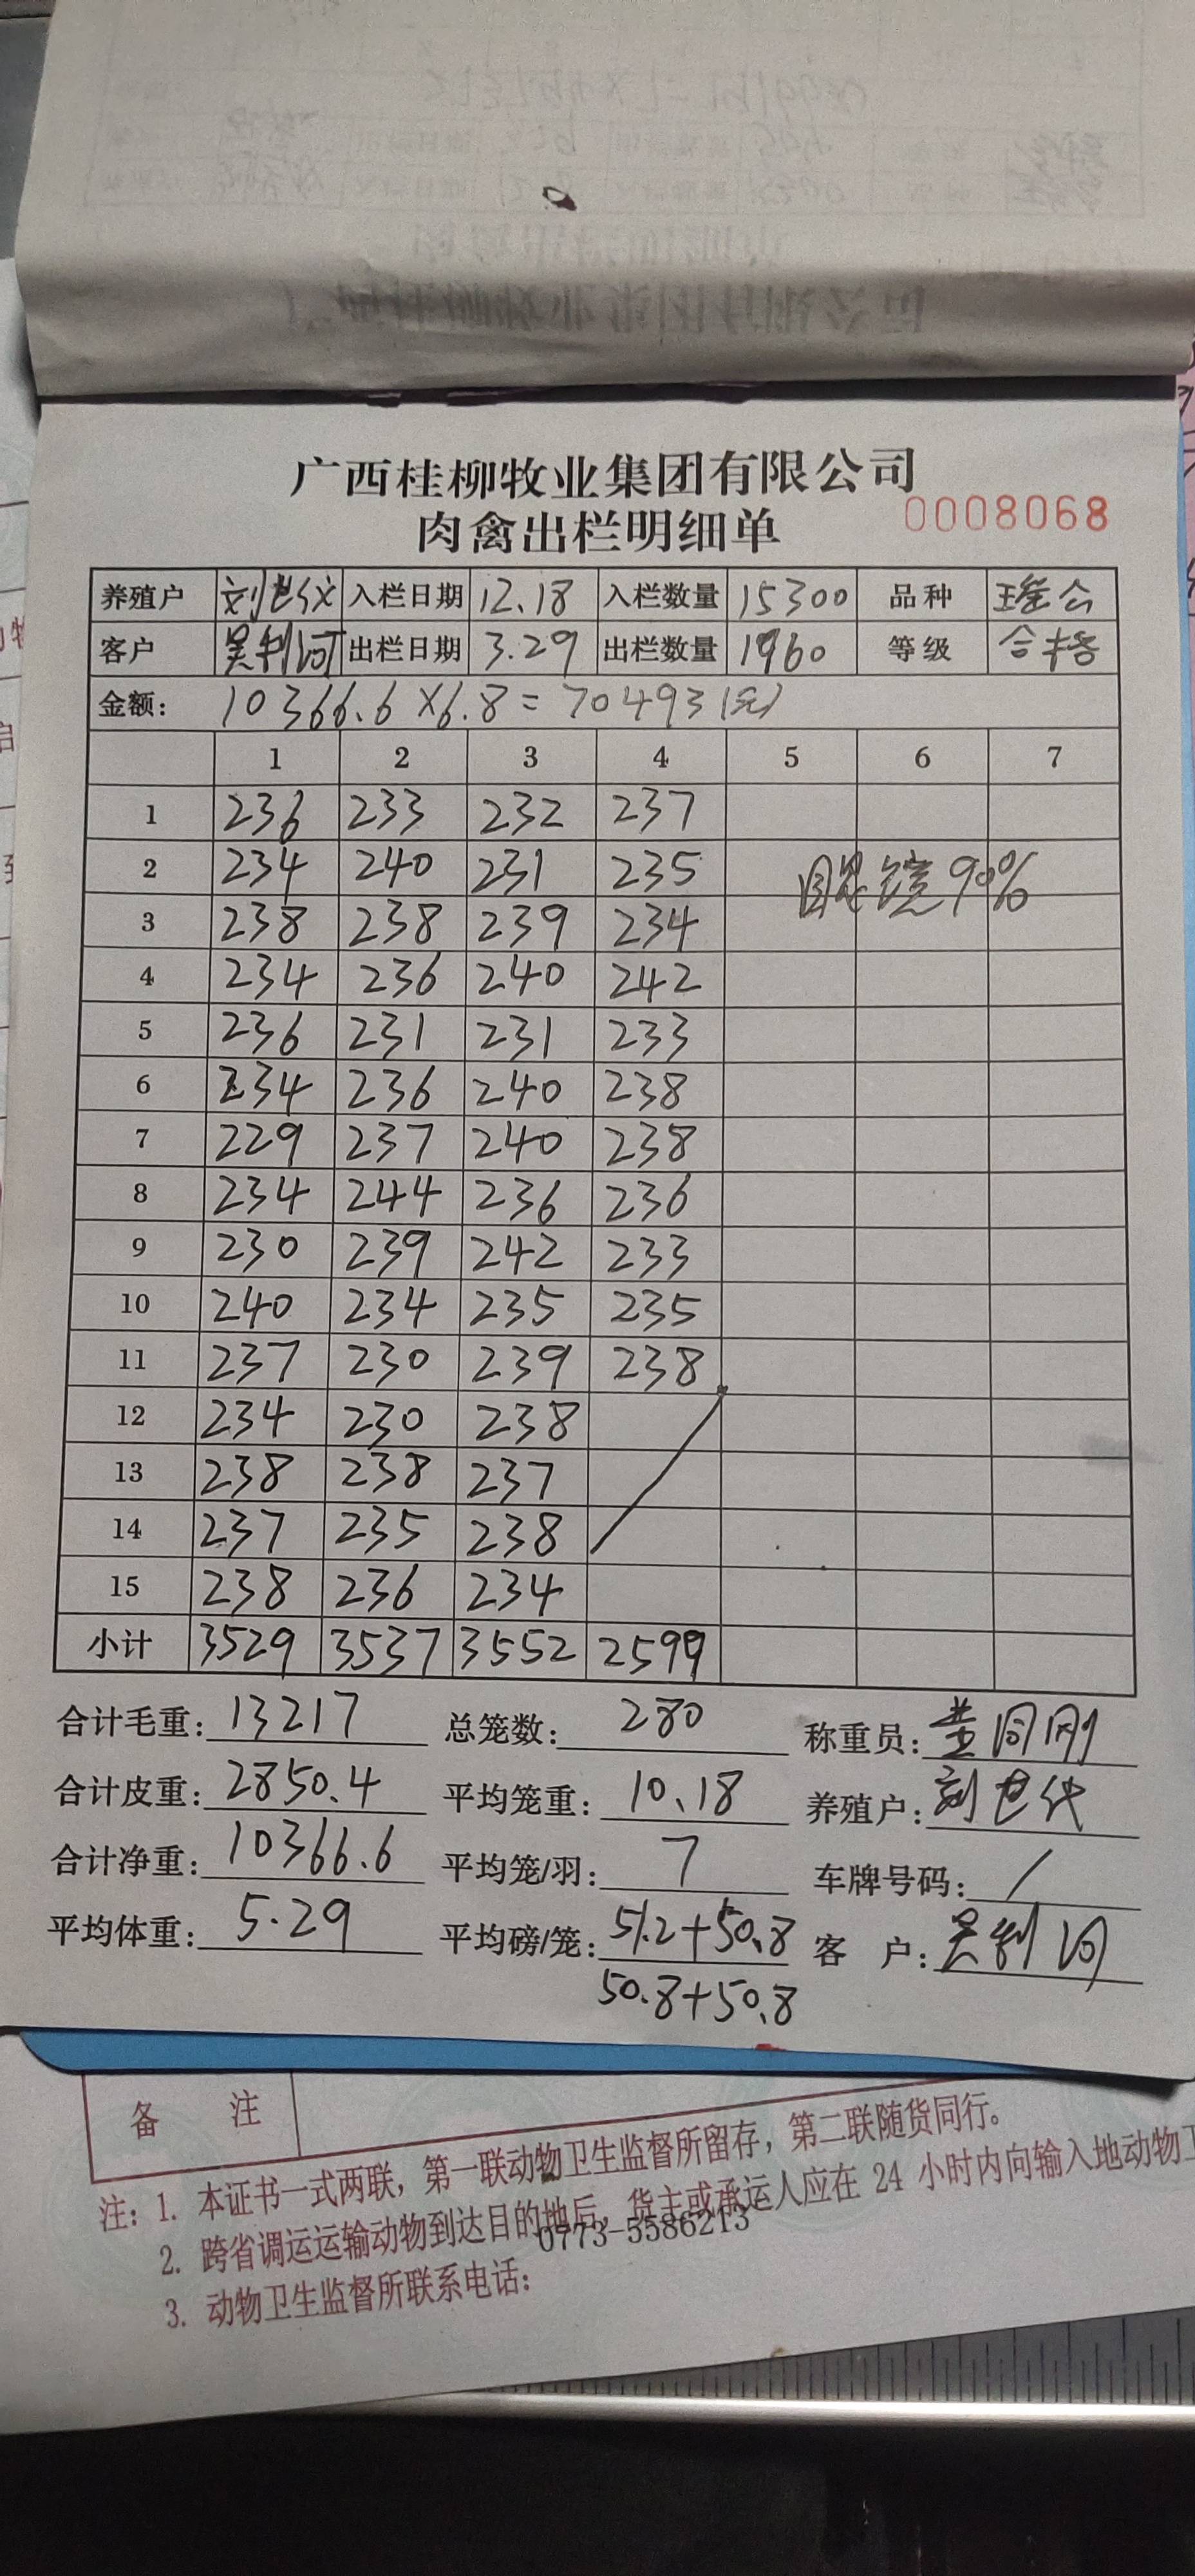 广西桂柳牧业集团有限公司
肉禽出栏明细单 0008068
养殖户 刘世代 入栏日期 12.18 入栏数量 15300 品种 瑶公
客户 吴利 出栏日期 3.29 出栏数量 1960 等级 合格
金额: 10366.6×6.8=70493(元)
1 2 3 4 5 6 7
1 236 233 232 237
2 234 240 231 235 眼镜90%
3 238 238 239 234
4 234 236 240 242
5 236 231 231 233
6 234 236 240 238
7 229 237 240 238
8 234 244 236 236
9 230 239 242 233
10 240 234 235 235
11 237 230 239 238
12 234 230 238
13 238 238 237
14 237 235 238
15 238 236 234
小计 3529 3537 3552 2599
合计毛重: 13217 总笼数: 280 称重员: 黄同刚
合计皮重: 2850.4 平均笼重: 10.18 养殖户: 刘世代
合计净重: 10366.6 平均笼/羽: 7 车牌号码: /
平均体重: 5.29 平均磅/笼: 51.2+50.8 客 户: 吴利
50.8+50.8
备 注
注: 1. 本证书一式两联, 第一联动物卫生监督所留存, 第二联随货同行。
2. 跨省调运运输动物到达目的地后, 货主或承运人应在 24 小时内向输入地动物卫
3. 动物卫生监督所联系电话: 0773-5586213